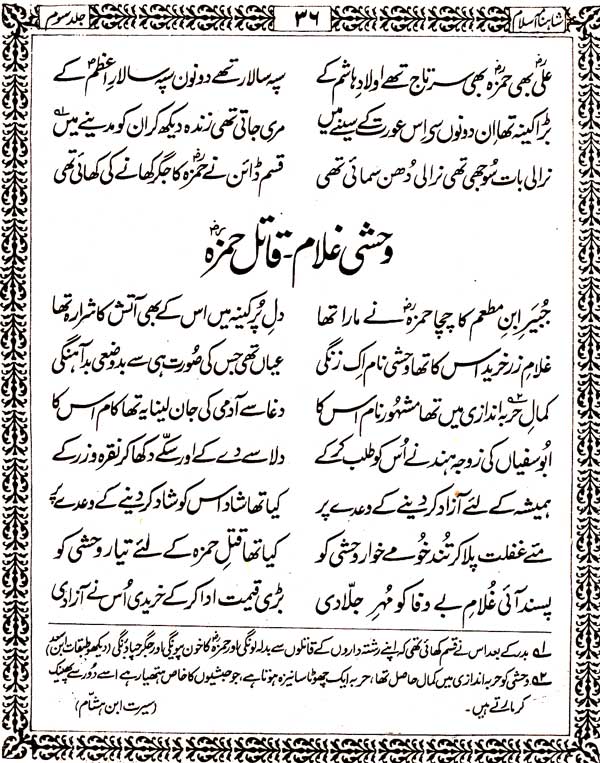 شاہنامہ اسلام ۳۶ جلد سوم
علیؓ بھی حمزہؓ بھی سرتاج تھے اولادِ ہاشم کے سپہ سالار تھے دونوں سپہ سالارِ اعظمؐ کے
بڑا کینہ تھا ان دونوں سے اس عورت کے سینے میں مری جاتی تھی زندہ دیکھ کر ان کو مدینے میں ؎۱
نرالی بات سُوجھی تھی نرالی دُھن سمائی تھی قسم ڈائن نے حمزہؓ کا جگر کھانے کی کھائی تھی
وحشی غلام ۔ قاتل حمزہؓ
جُبیر ابنِ مطعم کا چچا حمزہؓ نے مارا تھا دلِ پُرکینہ میں اس کے بھی آتش کا شرارہ تھا
غلامِ زر خرید اس کا تھا وحشی نام اِک زنگی عیاں تھی جس کی صُورت ہی سے بدوضعی بد آہنگی
کمالِ حربہ ؎۲ اندازی میں تھا مشہور نام اس کا دغا سے آدمی کی جان لینا یہ تھا کام اس کا
ابوسفیاں کی زوجہ ہند نے اُس کو طلب کر کے دلاسے دے کے اور سکّے دکھا کر نقرہ و زر کے
ہمیشہ کے لئے آزاد کر دینے کے وعدے پر کیا تھا شاد اس کو شاد کر دینے کے وعدے پر
مئے غفلت پلا کر تُند خُو مے خوار وحشی کو کیا تھا قتلِ حمزہ کے لئے تیار وحشی کو
پسند آئی غُلامِ بے وفا کو مُہرِ جلّادی بڑی قیمت ادا کر کے خریدی اُس نے آزادی
؎۱ بدر کے بعد اس نے قسم کھائی تھی کہ اپنے رشتہ داروں کے قاتلوں سے بدلہ لونگی اور حمزہؓ کا خون پیونگی اور جگر چباؤنگی (دیکھو طبقات ابن سعد)
؎۲ وحشی کو حربہ اندازی میں کمال حاصل تھا، حربہ ایک چھوٹا سا نیزہ ہوتا ہے، جو حبشیوں کا خاص ہتھیار ہے اسے دُور سے پھینک
کر مارتے ہیں ۔ (سیرت ابن ہشام)